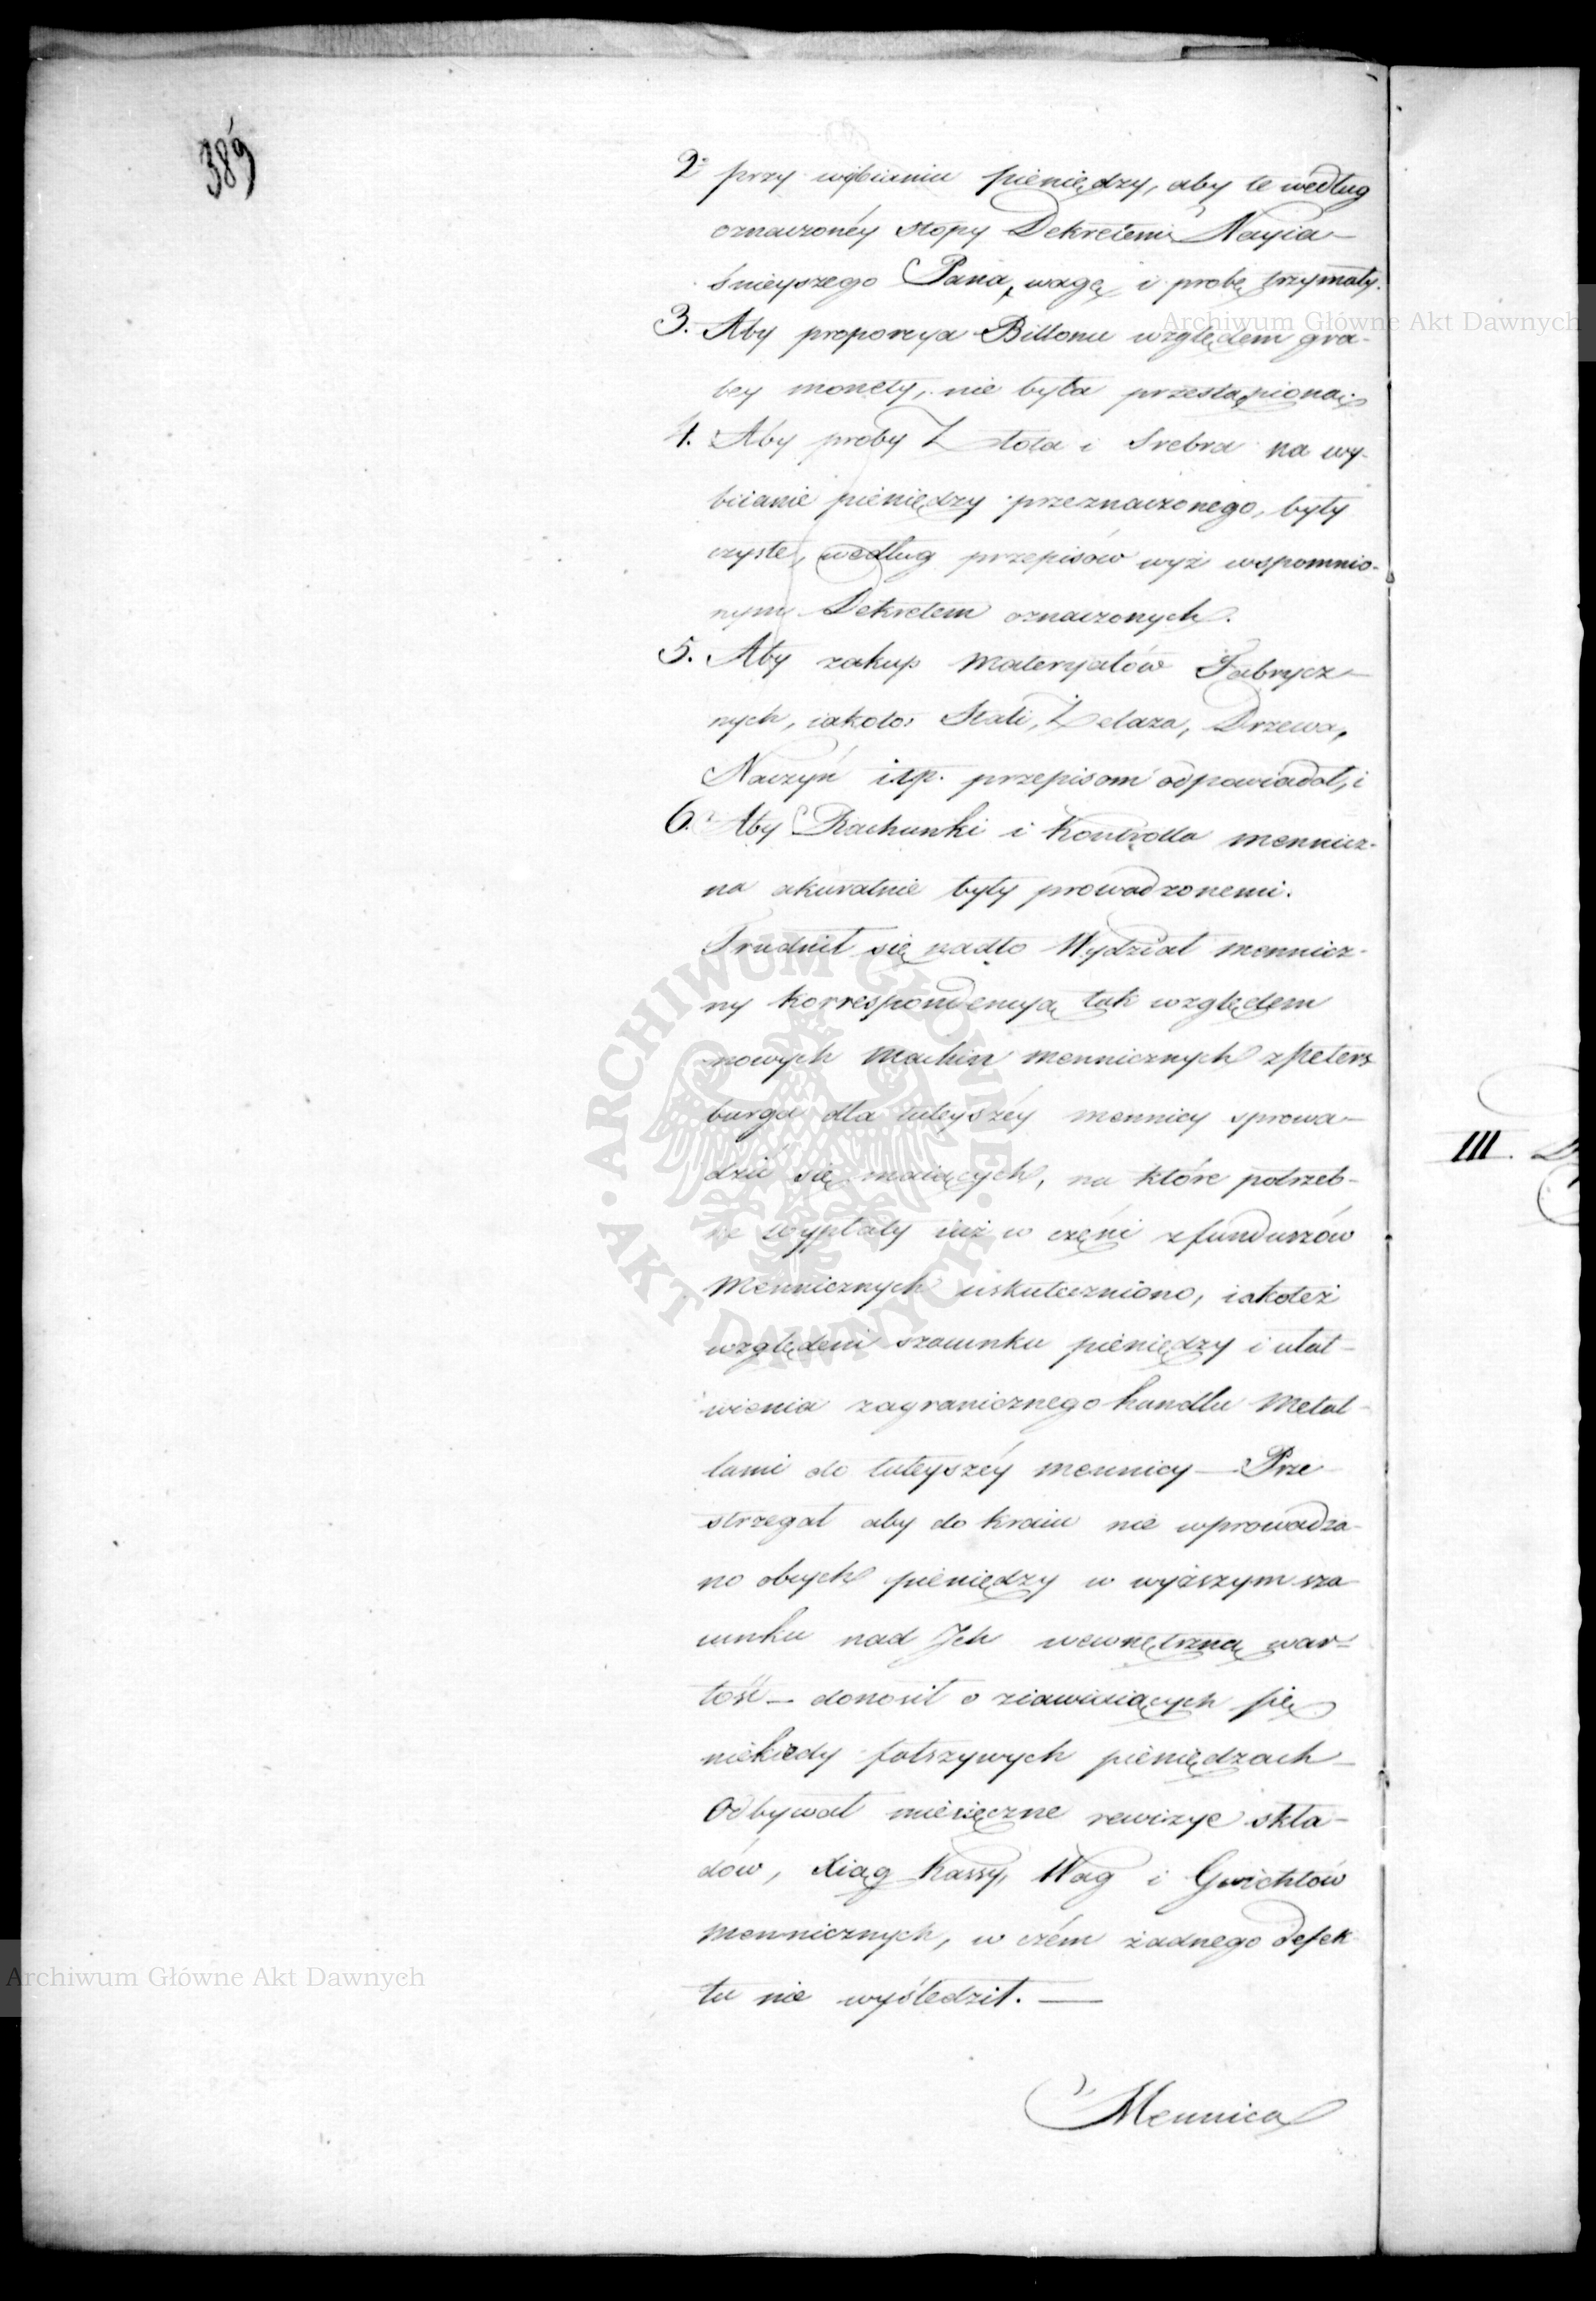 389
2. przy wybiianiu pieniędzy, aby te według
oznaczonéy stopy Dekretem Nayia-
śnieyszego Pana, wagę i probę trzymały.
3. Aby proporcya Billonu względem gra-
bey monety, nie była przestąpioną;
4. Aby proby Złota i Srebra na wy-
biianie pieniędzy przeznaczonego, były
czyste, według przepisów wyż wspomnio-
nym Dekretem oznaczonych.
5. Aby zakup materyałów Fabrycz-
nych, iakoto: Stali, Żelaza, Drzewa,
Naczyń itp. przepisom odpowiadał, i
6. Aby Rachunki i Kontrolla mennicz-
na akuratnie były prowadzonemi.
Trudnił się nadto Wydział mennicz-
ny korrespondencyą tak względem
nowych Machin mennicznych z Peters
burga dla tuteyszéy mennicy sprowa-
dzić się maiących, na które potrzeb-
ne wypłaty iuż w części z funduszów
Mennicznych uskuteczniono, iakoteż
względem szacunku pieniędzy i ułat-
wienia zagranicznego handlu Metal-
lami do tuteyszéy mennicy — Prze
strzegał aby do kraiu nie wprowadza-
no obcych pieniędzy w wyższym sza
cunku nad Jch wewnętrzną war-
tość — donosił o ziawiaiących się
niekiedy fałszywych pieniędzach —
Odbywał miesięczne rewizye skła-
dów, Xiąg Kassy, Wag i Gwichtów
mennicznych, w czém żadnego defek
tu nie wyśledził. —
Mennica
III.
Archiwum Główne Akt Dawnych
Archiwum Główne Akt Dawnych
ARCHIWUM GŁÓWNE
AKT DAWNYCH